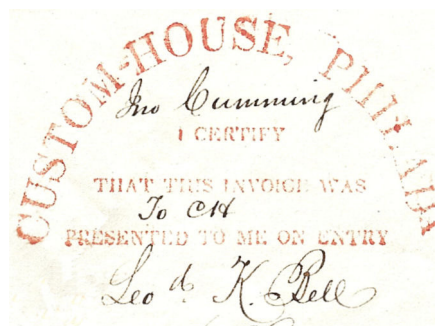 CUSTOM-HOUSE, PHILADA
Jno Cumming
I CERTIFY
THAT THIS INVOICE WAS
To CH
PRESENTED TO ME ON ENTRY
Leod. K. Bell